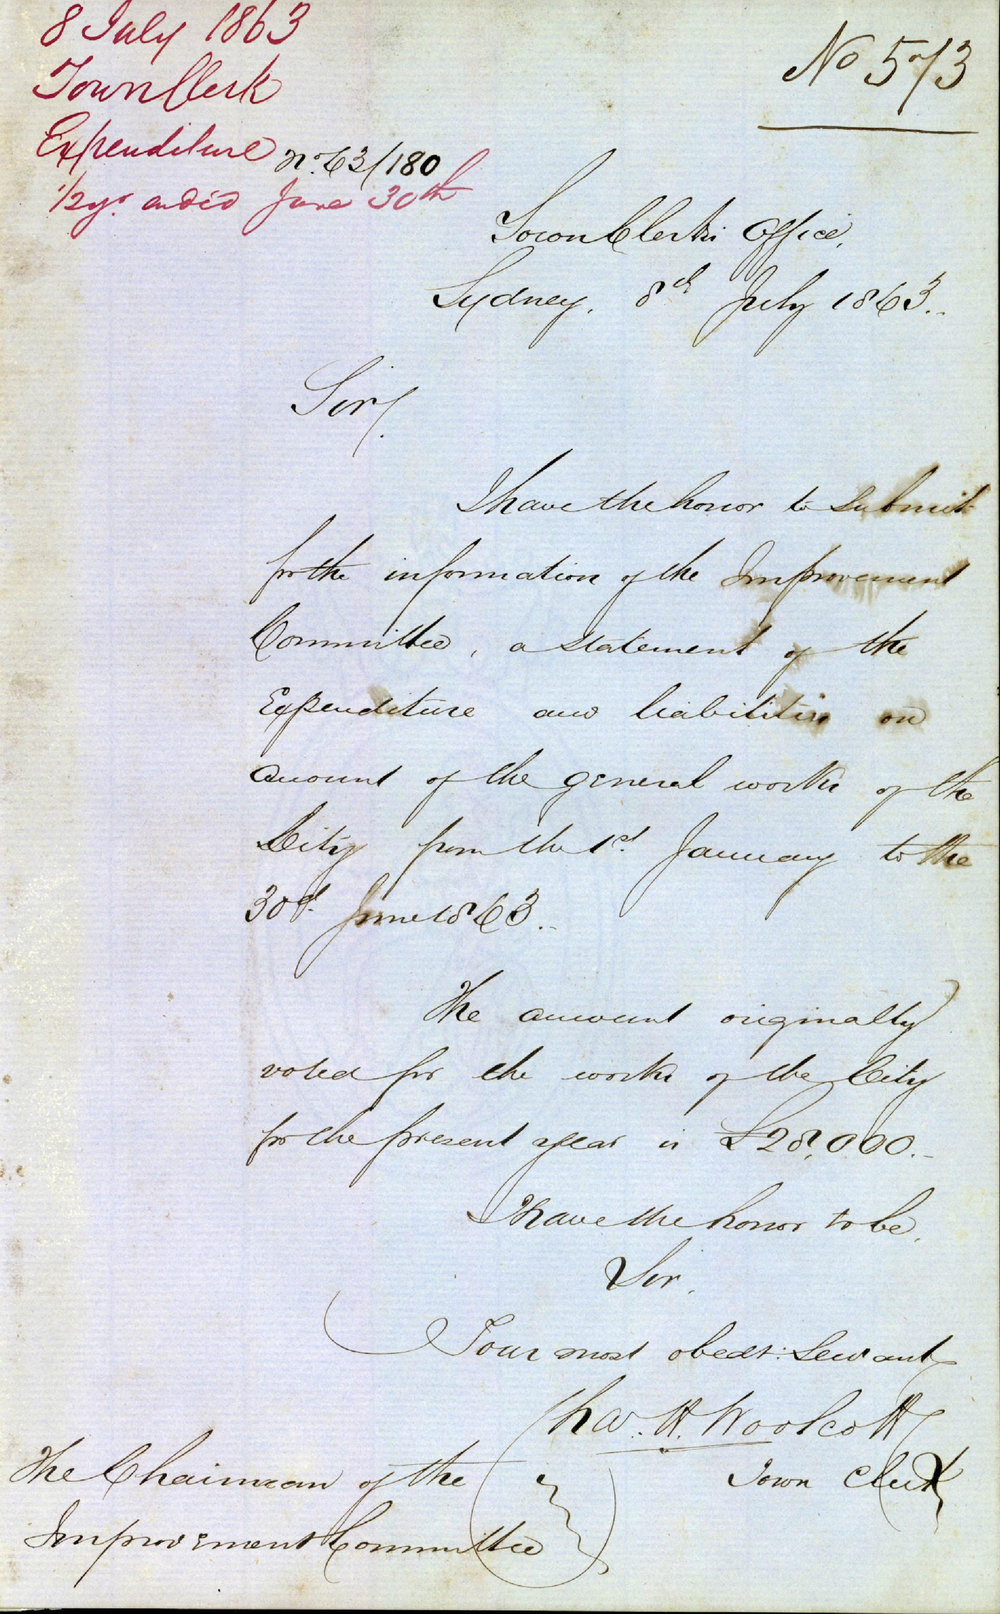 8 July 1863
Town Clerk
Expenditure
No. 63/180
1/2 yr. ended June 30th
No 573
Town Clerk's Office,
Sydney, 8th July 1863.
Sir/.
I have the honor to submit
for the information of the Improvement
Committee, a statement of the
Expenditure and liabilities on
account of the general works of the
City from the 1st. January to the
30th June 1863.
The amount originally
voted for the works of the City
for the present year is £28,000.
I have the honor to be,
Sir,
Your most obedt. Servant
Chas. H. Woolcott
Town Clerk
The Chairman of the
Improvement Committee